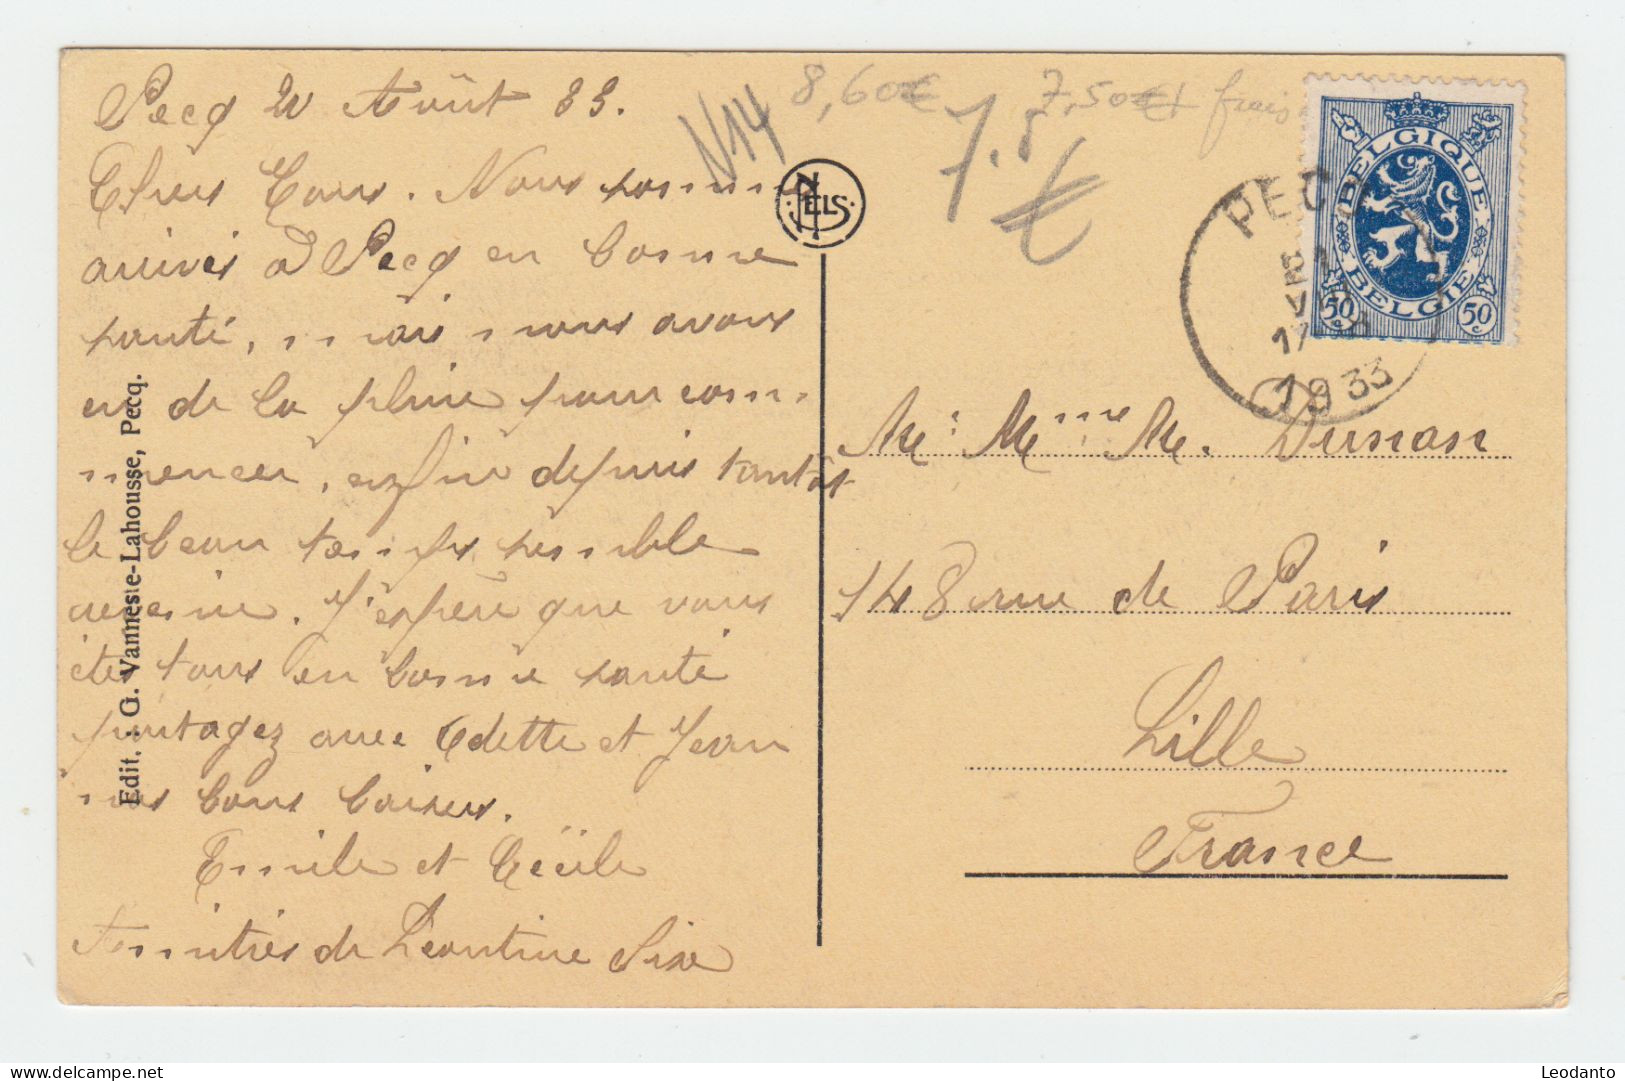 Pecq Août 33.
Chers Tous. Nous sommes
arrivés à Pecq en bonne
santé, mais nous avons
eu de la pluie pour com-
mencer, enfin depuis tantôt
le beau temps semble
revenir. J'espère que vous
êtes tous en bonne santé
partagez avec Odette et Jean
nos bons baisers.
Emile et Cécile
Amitiés de Léontine
Edit. : G. Vanneste-Lahousse, Pecq.
N14
8,60€
7,50€+ frais
7.5
€
NELS
BELGIQUE
BELGIE
50c
50c
PECQ
1
VIII
17-18
1933
Mr. Mme M. Dunan
148 rue de Paris
Lille
France
Leodanto